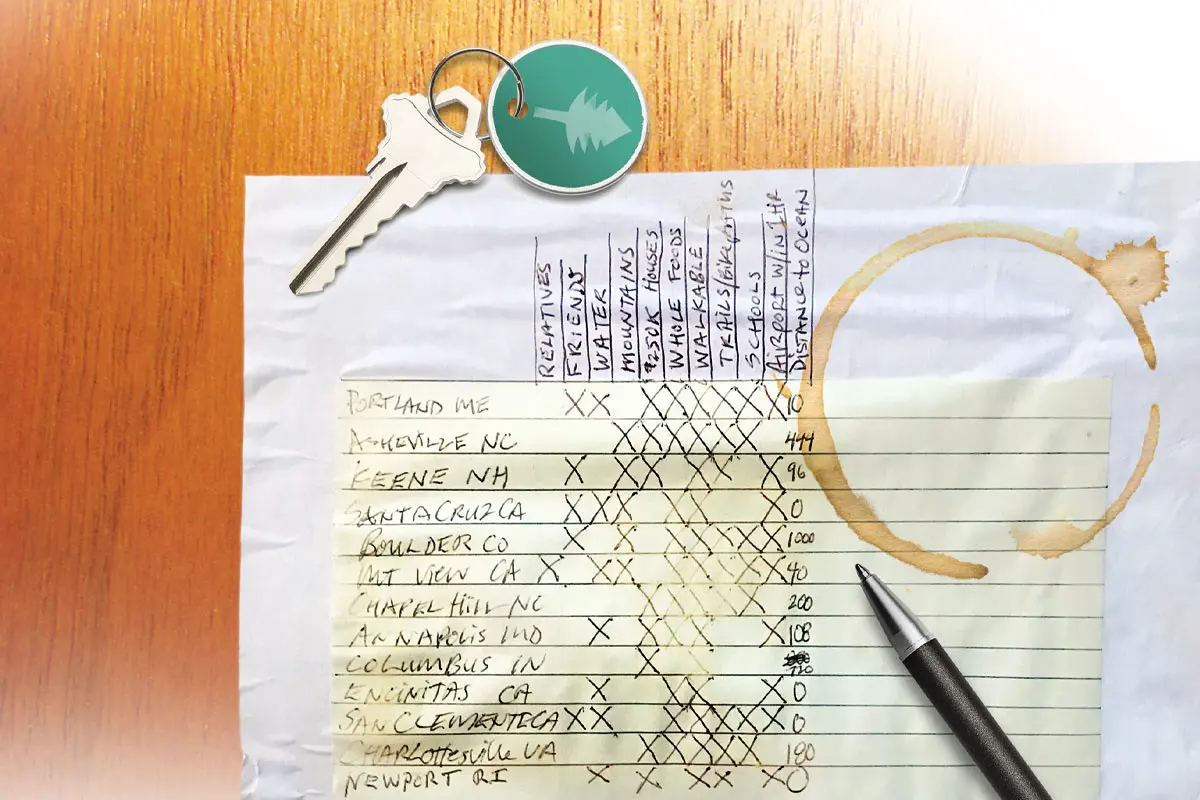 RELATIVES
FRIENDS
WATER
MOUNTAINS
$250K HOUSES
WHOLE FOODS
WALKABLE
TRAILS/BIKE PATHS
SCHOOLS
AIRPORT W/IN 1HR
DISTANCE TO OCEAN
PORTLAND ME X X X X X X X X 10
ASHEVILLE NC X X X X X X 444
KEENE NH X X X X X X 96
SANTA CRUZ CA X X X X X X 0
BOULDER CO X X X X X X X 1000
MT VIEW CA X X X X X X X X 40
CHAPEL HILL NC X X X X X 200
ANNAPOLIS MD X X X X X 108
COLUMBUS IN X X X
ENCINITAS CA X X X X 0
SAN CLEMENTE CA X X X X X X X 0
CHARLOTTESVILLE VA X X X X X 180
NEWPORT RI X X X X X 0